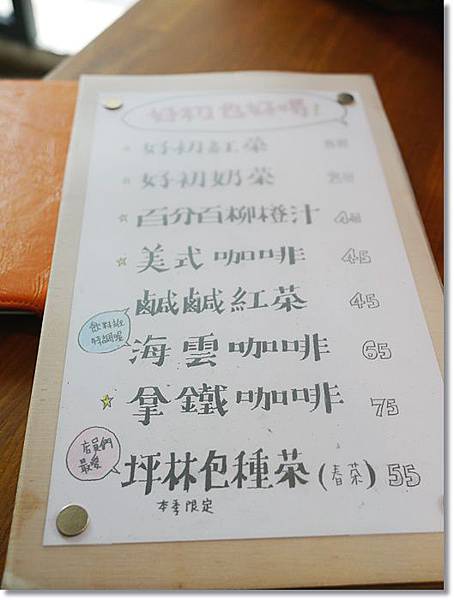 好初也好喝!
好初紅茶
好初奶茶
百分百柳橙汁
美式咖啡 45
鹹鹹紅茶 45
飲料控
特調喔
海雲咖啡 65
拿鐵咖啡 75
店員們
最愛
坪林包種茶(春茶) 55
本季限定